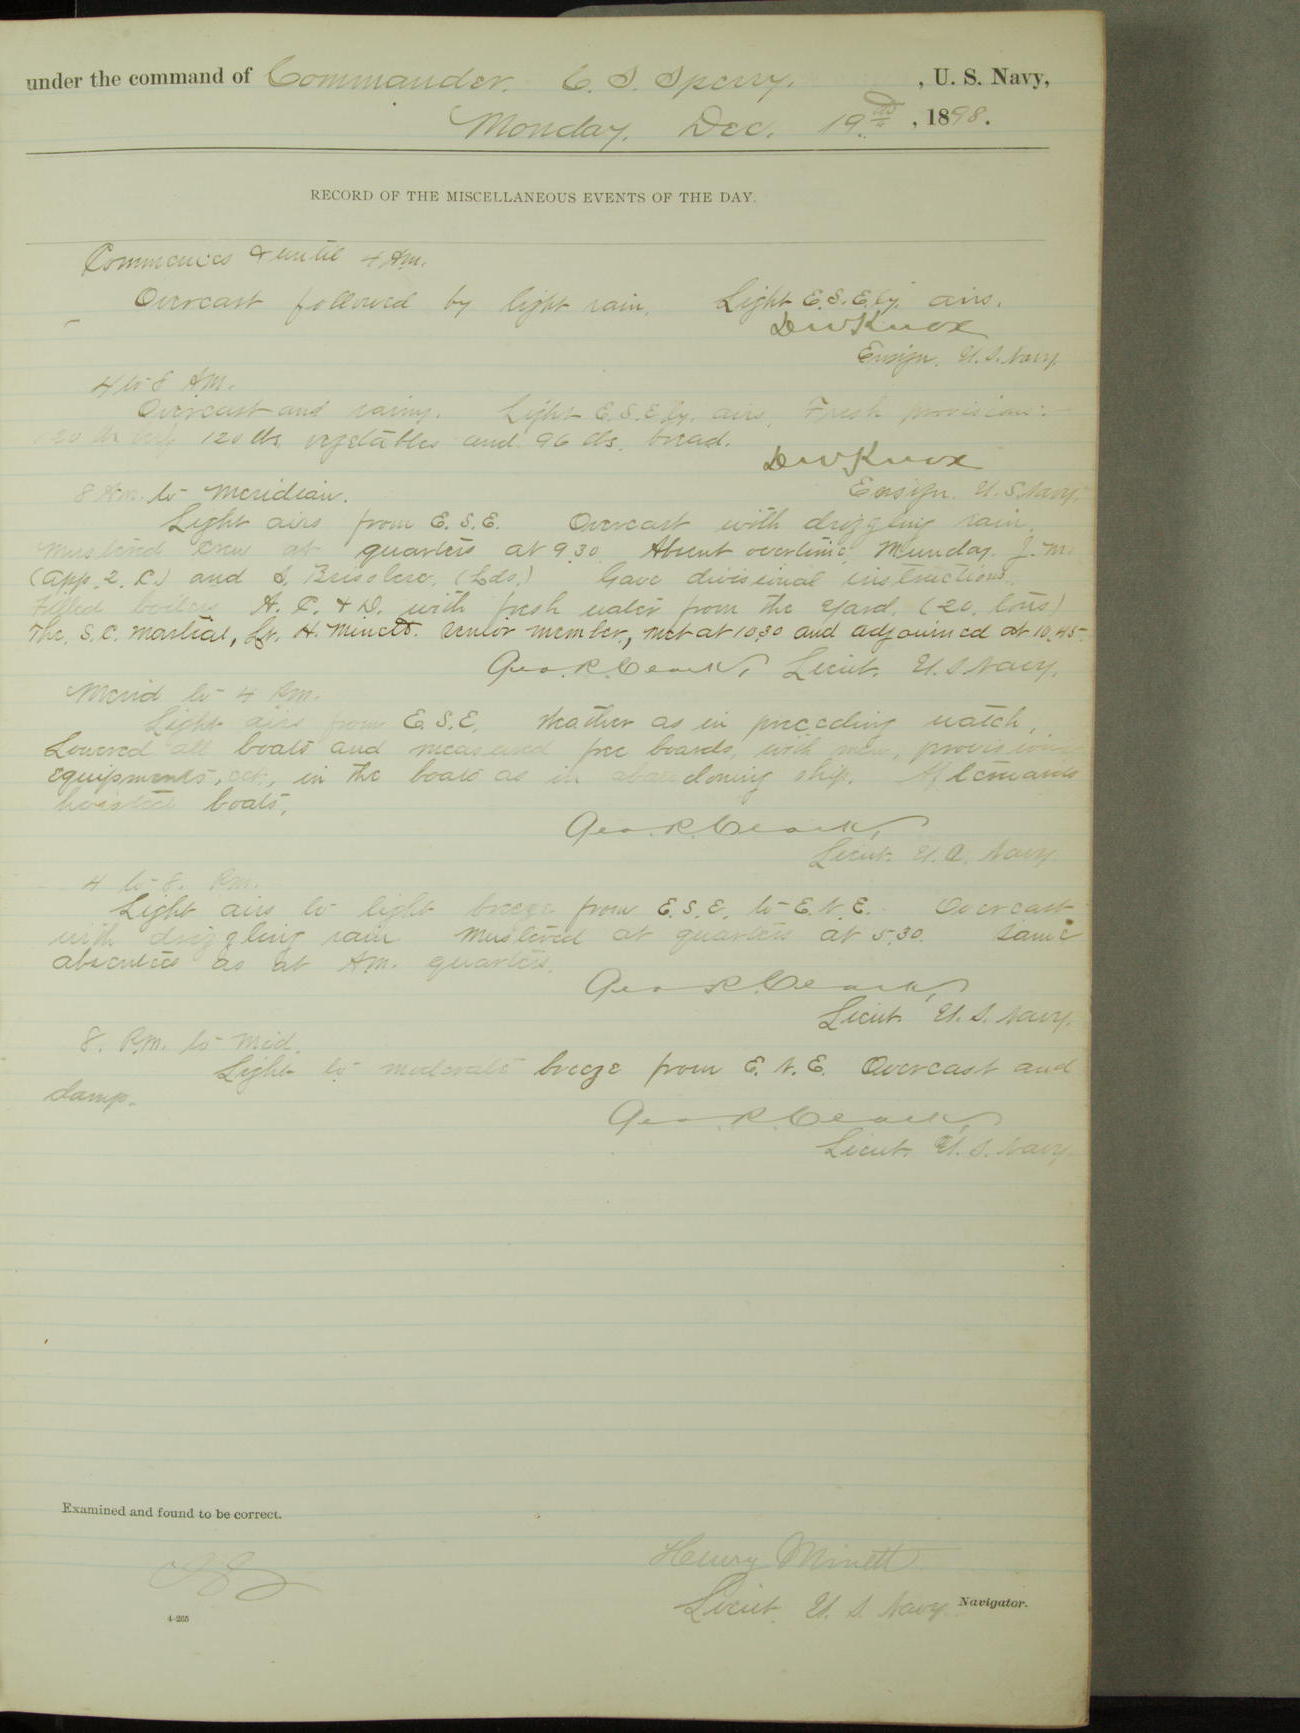 under the command of Commander. C. S. Sperry. , U. S. Navy,
Monday, Dec. 19th , 1898.
RECORD OF THE MISCELLANEOUS EVENTS OF THE DAY.
Commences & until 4 Am.
Overcast followed by light rain. Light E.S.E'ly. airs.
D W Knox
Ensign. U.S. Navy.
4 to 8 AM.
Overcast and rainy. Light E.S.E'ly. airs. Fresh provisions:
120 lbs beef 120 lbs. vegetables and 96 lbs. bread.
D W Knox
Ensign. U.S. Navy.
8 Am. to Meridian.
Light airs from E.S.E. Overcast with drizzling rain.
Mustered crew at quarters at 9.30 Absent overtime, Munday. J. M.
(App. 2. C.) and S. (Lds.) Gave divisional instructions.
Filled boilers A. C. & D. with fresh water from the Yard. (20. tons)
The. S.C. Martial, Lt. H. Minett. senior member, met at 10.30 and adjourned at 10.45.
Geo. R. Clark, Lieut. U.S. Navy.
Merid to 4 Pm.
Light airs from E.S.E. Weather as in preceding watch.
Lowered all boats and measured free boards, with men, provisions
equipments, etc., in the boats as in abandoning ship. Afterwards
hoisted boats.
Geo. R. Clark,
Lieut. U.S. Navy.
4 to 8. Pm.
Light airs to light breeze from E.S.E. to E.N.E. Overcast
with drizzling rain Mustered at quarters at 5.30. Same
absentees as at AM. quarters.
Geo R. Clark,
Lieut. U.S. Navy.
8. P.m. to Mid.
Light to moderate breeze from E.N.E. Overcast and
damp.
Geo. R. Clark,
Lieut. U.S. Navy.
Examined and found to be correct.
Henry Minett
Lieut. U. S. Navy Navigator.
4-265